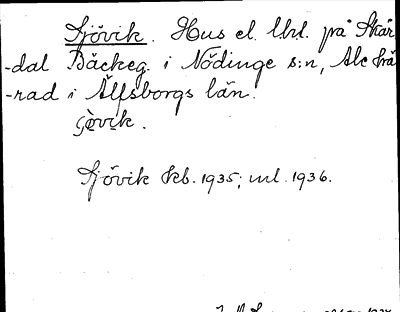 Sjövik. Hus el. lht. på Skår
-dal Bäckeg. i Nödinge s:n, Ale hä
-rad i Älfsborgs län.
Sjövik kb. 1935; ml. 1936.